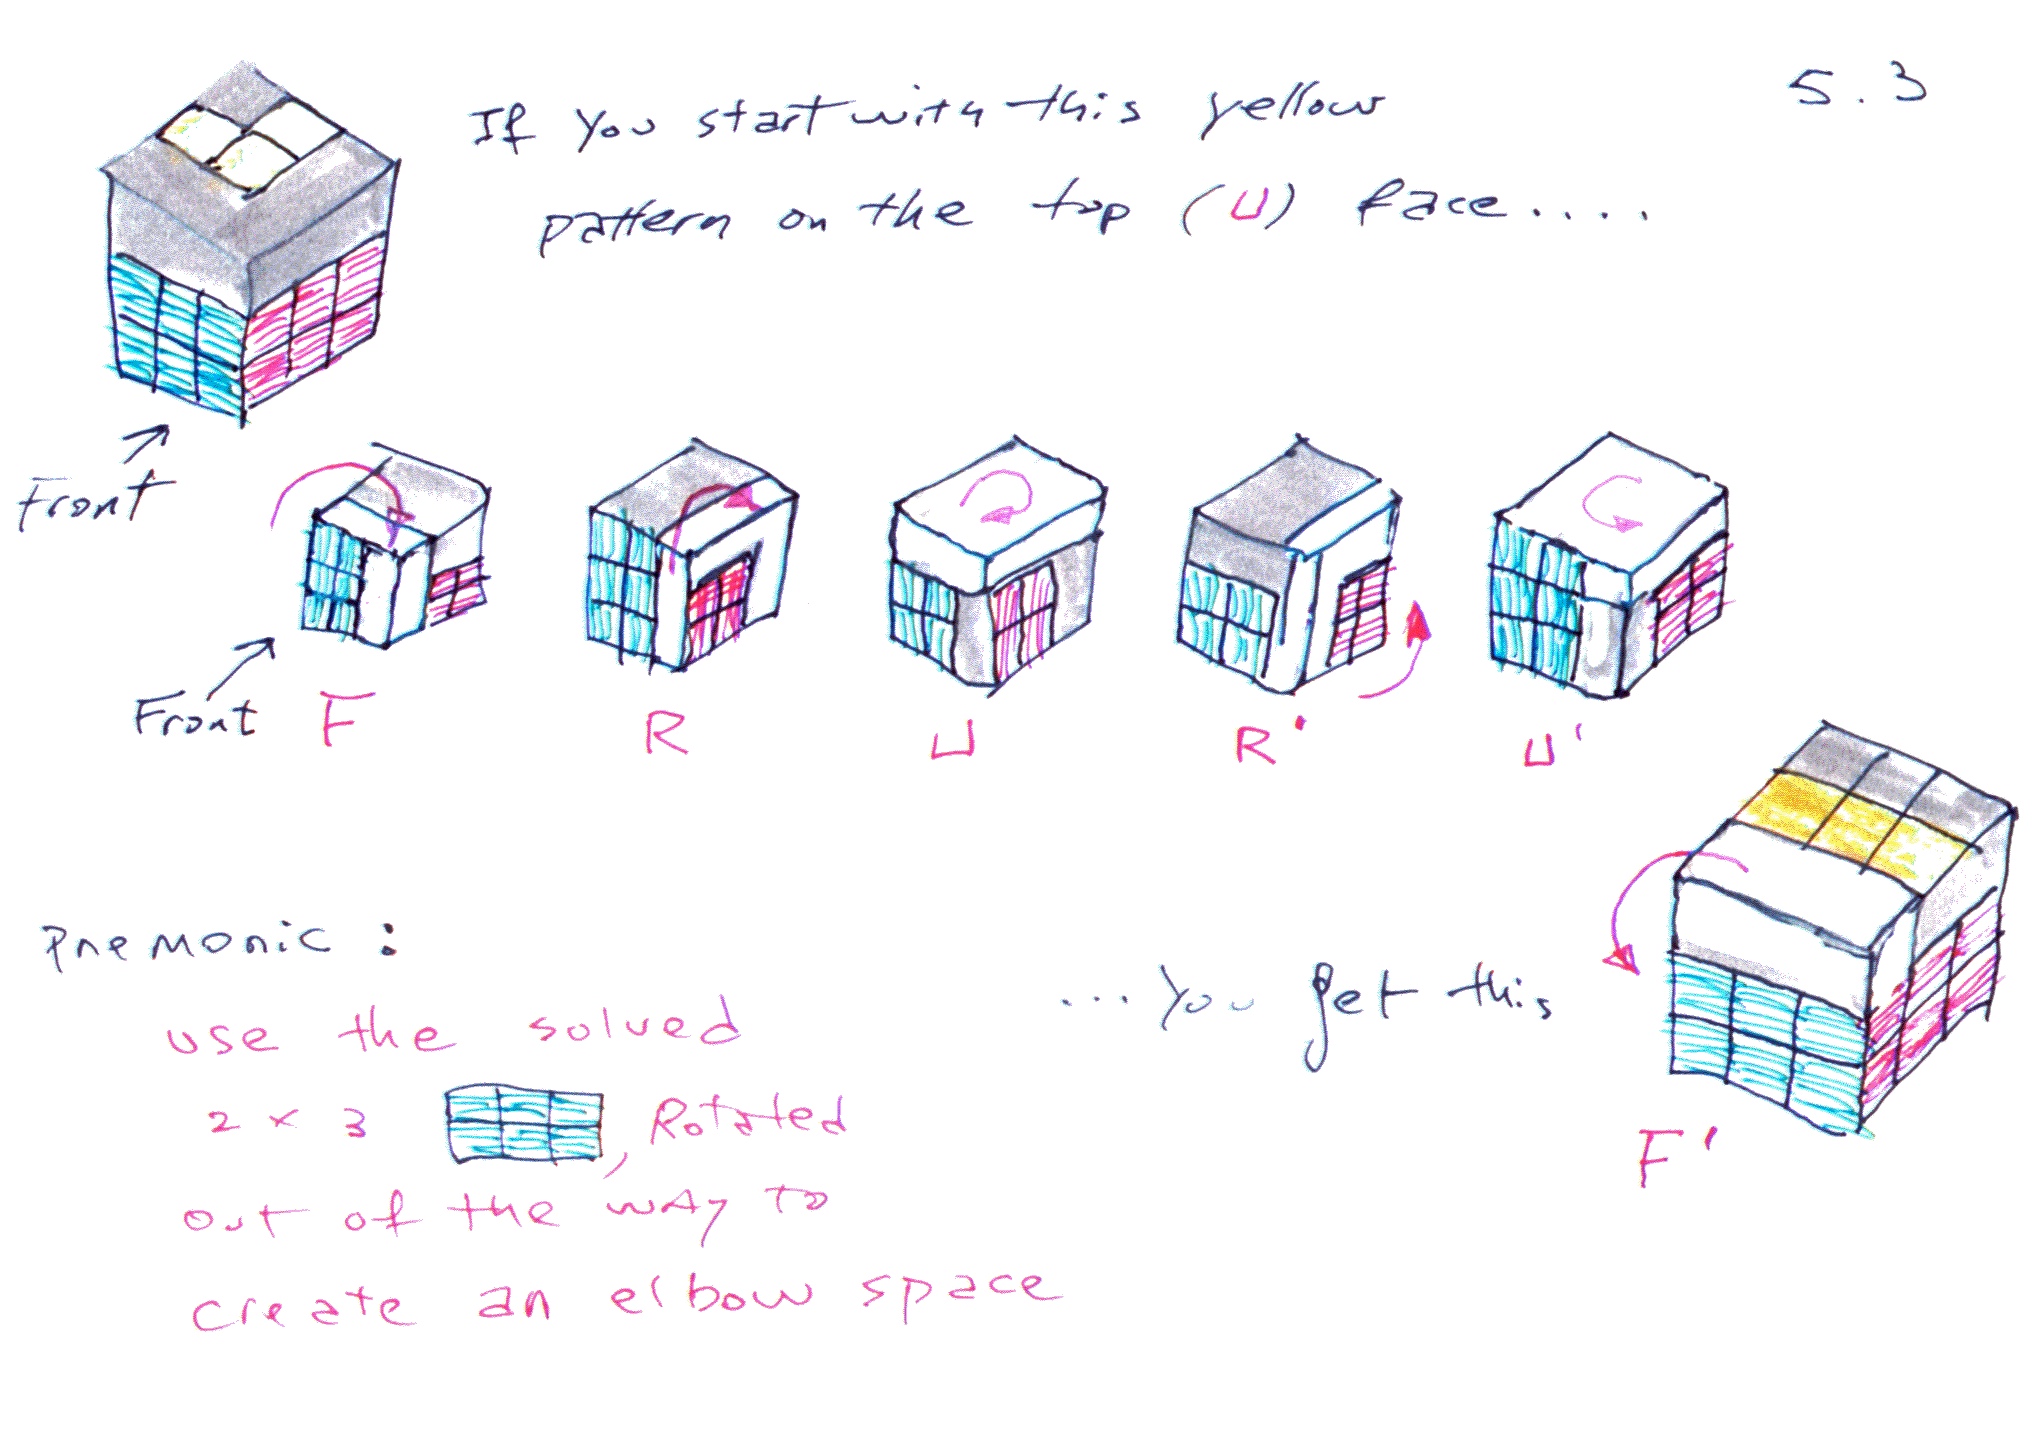 If you start with this yellow
5.3
pattern on the top (U) face....
Front
Front
F R U R' U'
F'
...you get this
Pnemonic:
use the solved
2 x 3 , Rotated
out of the way to
create an elbow space